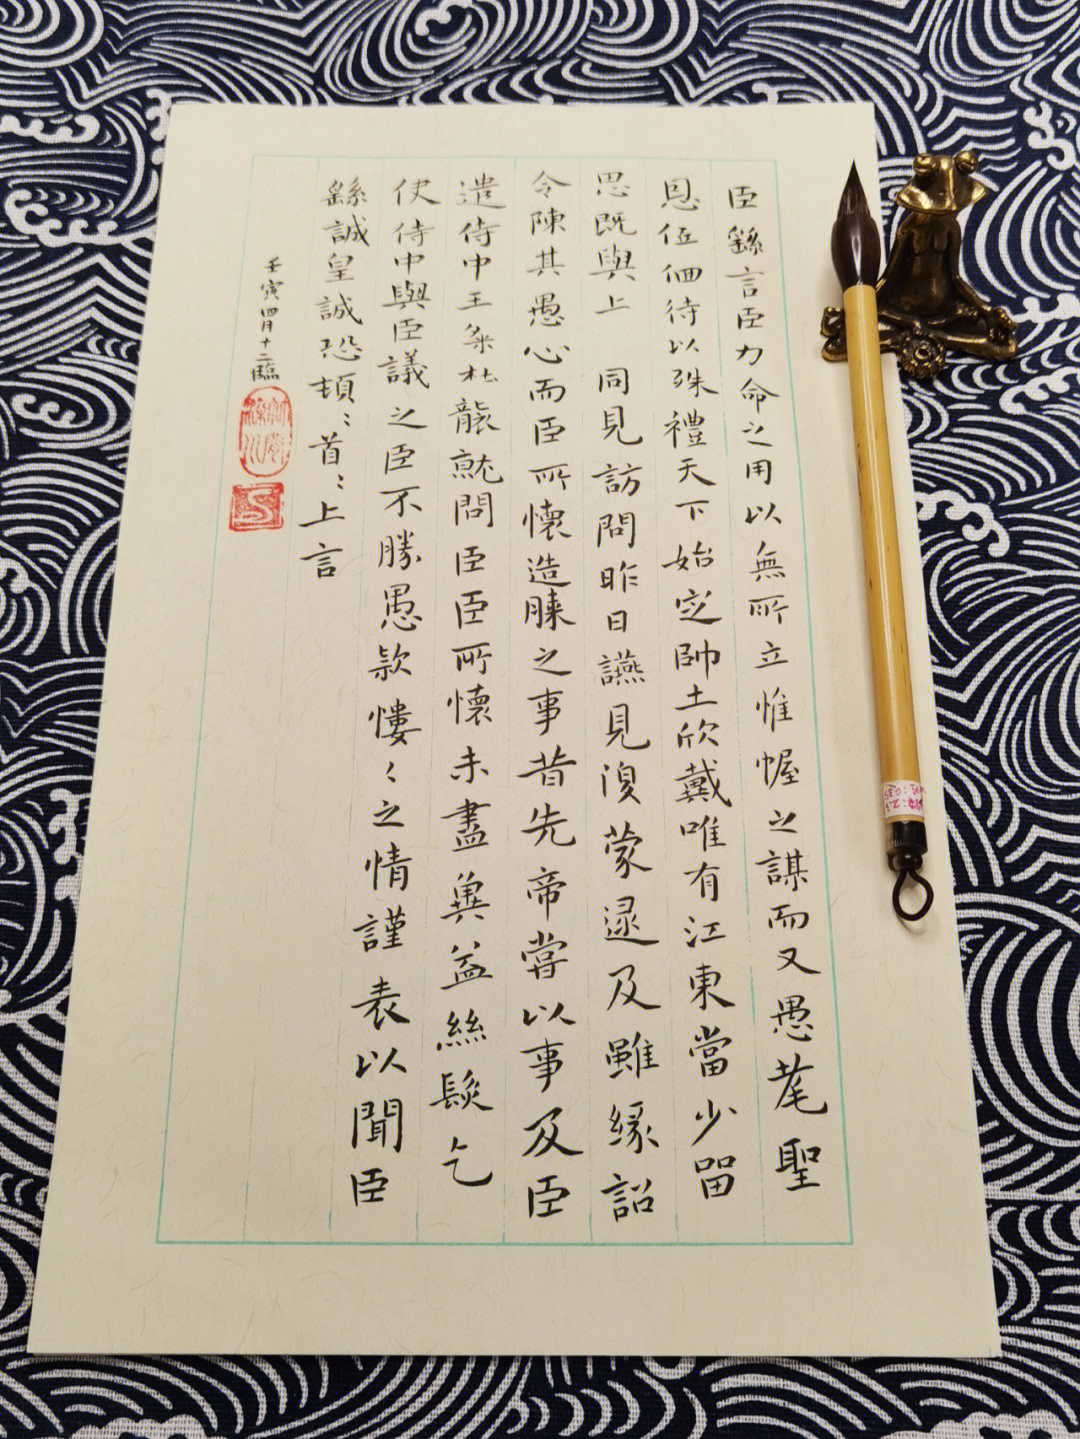 臣繇言臣力命之用以無所立惟幄之謀而又愚耄聖
恩伍侕待以殊禮天下始定帥土欣戴唯有江東當少留
思既與上 同見訪問昨日讌見復蒙逮及雖緣詔
令陳其愚心而臣所懷造膝之事昔先帝嘗以事及臣
遣侍中王粲杜襲就問臣臣所懷未盡冀益絲髮乞
使侍中與臣議之臣不勝愚款慺〻之情謹表以聞臣
繇誠皇誠恐頓〻首〻上言
壬寅四月十二臨